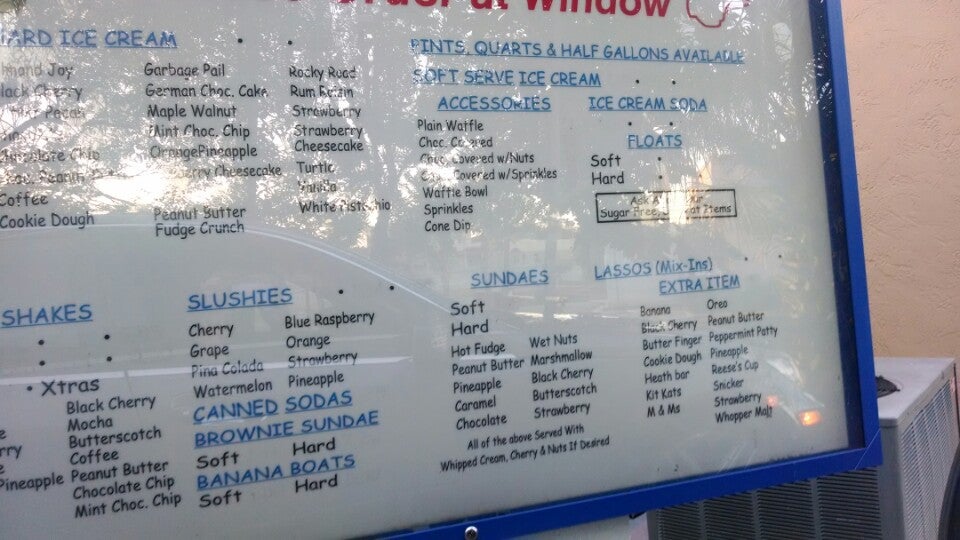 at Window
HARD ICE CREAM
Almond Joy
Black Cherry
Pecan
Chocolate Chip
Peanut
Coffee
Cookie Dough
Garbage Pail
German Choc. Cake
Maple Walnut
Mint Choc. Chip
OrangePineapple
Cheesecake
Peanut Butter
Fudge Crunch
Rocky Road
Rum Raisin
Strawberry
Strawberry
Cheesecake
Turtle
Vanilla
White Pistachio
PINTS, QUARTS & HALF GALLONS AVAILABLE
SOFT SERVE ICE CREAM
ACCESSORIES
Plain Waffle
Choc. Covered
Choc. Covered w/Nuts
Covered w/Sprinkles
Waffle Bowl
Sprinkles
Cone Dip
ICE CREAM SODA
FLOATS
Soft
Hard
Sugar Free Items
SHAKES
• Xtras
Black Cherry
Mocha
Butterscotch
Coffee
Pineapple Peanut Butter
Chocolate Chip
Mint Choc. Chip
SLUSHIES
Cherry
Grape
Pina Colada
Watermelon
Blue Raspberry
Orange
Strawberry
Pineapple
CANNED SODAS
BROWNIE SUNDAE
Soft Hard
BANANA BOATS
Soft Hard
SUNDAES
Soft
Hard
Hot Fudge
Peanut Butter
Pineapple
Caramel
Chocolate
Wet Nuts
Marshmallow
Black Cherry
Butterscotch
Strawberry
All of the above Served With
Whipped Cream, Cherry & Nuts If Desired
LASSOS (Mix-Ins)
EXTRA ITEM
Banana
Black Cherry
Butter Finger
Cookie Dough
Heath bar
Kit Kats
M & Ms
Oreo
Peanut Butter
Peppermint Patty
Pineapple
Reese's Cup
Snicker
Strawberry
Whopper Malt